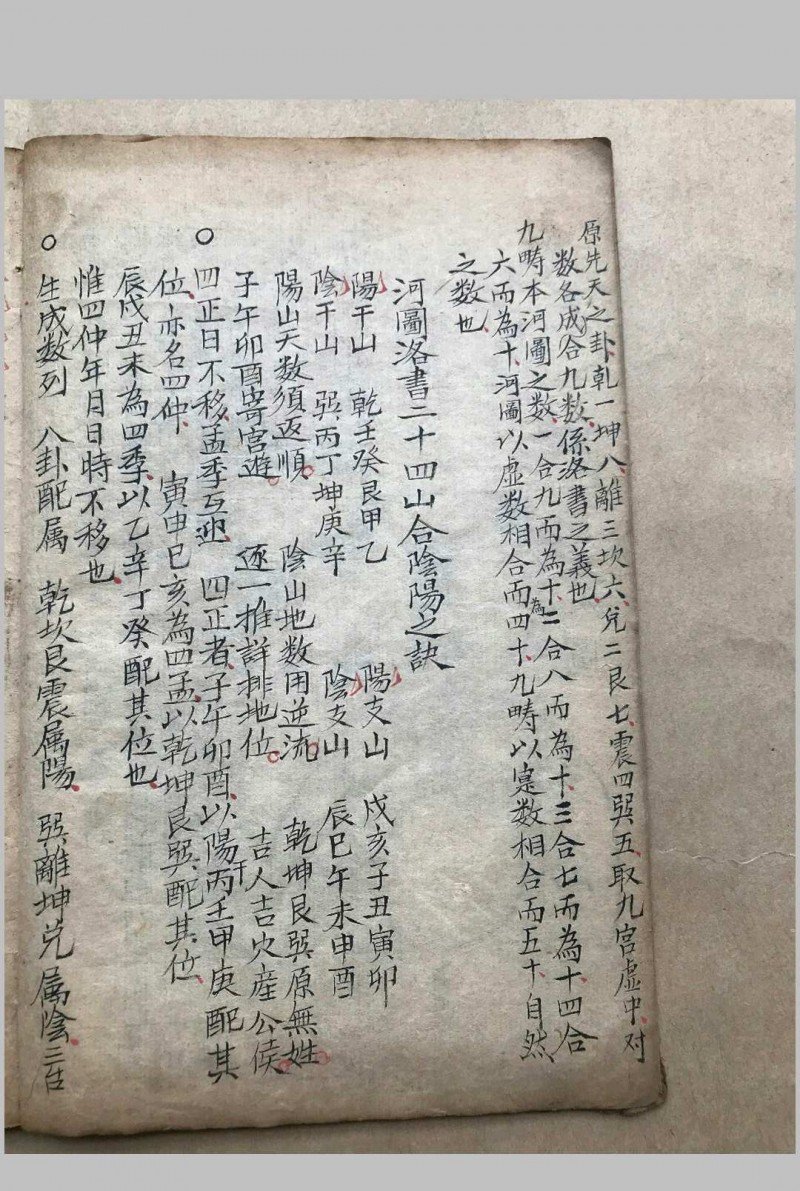 原先天之卦、乾一坤八、離三坎六、兌二艮七、震四巽五、取九宮虛中、对
数各成合九数、係洛書之義也、
九疇本河圖之数、一合九而為十、為二合八而為十、三合七而為十、四合
六而為十、河圖以虛数相合而四十、九疇以寔数相合而五十、自然
之数也、
河圖洛書二十四山合陰陽之訣
陽干山 乾壬癸艮甲乙 陽支山 戌亥子丑寅卯
陰干山 巽丙丁坤庚辛 陰支山 辰巳午未申酉
陽山天数須返順。 陰山地数用逆流。 乾坤艮巽原無姓。
子午卯酉寄宮遊。 逐一推詳排地位。 吉人吉穴産公侯。
四正日不移、孟季互迎、 四正者、子午卯酉、以陽干丙壬甲庚配其
位、亦名四仲、 寅申巳亥為四孟、以乾坤艮巽配其位、
辰戌丑未為四季、以乙辛丁癸配其位也、
惟四仲年月日時不移也、
生成数列 八卦配属 乾坎艮震属陽、 巽離坤兌属陰、三